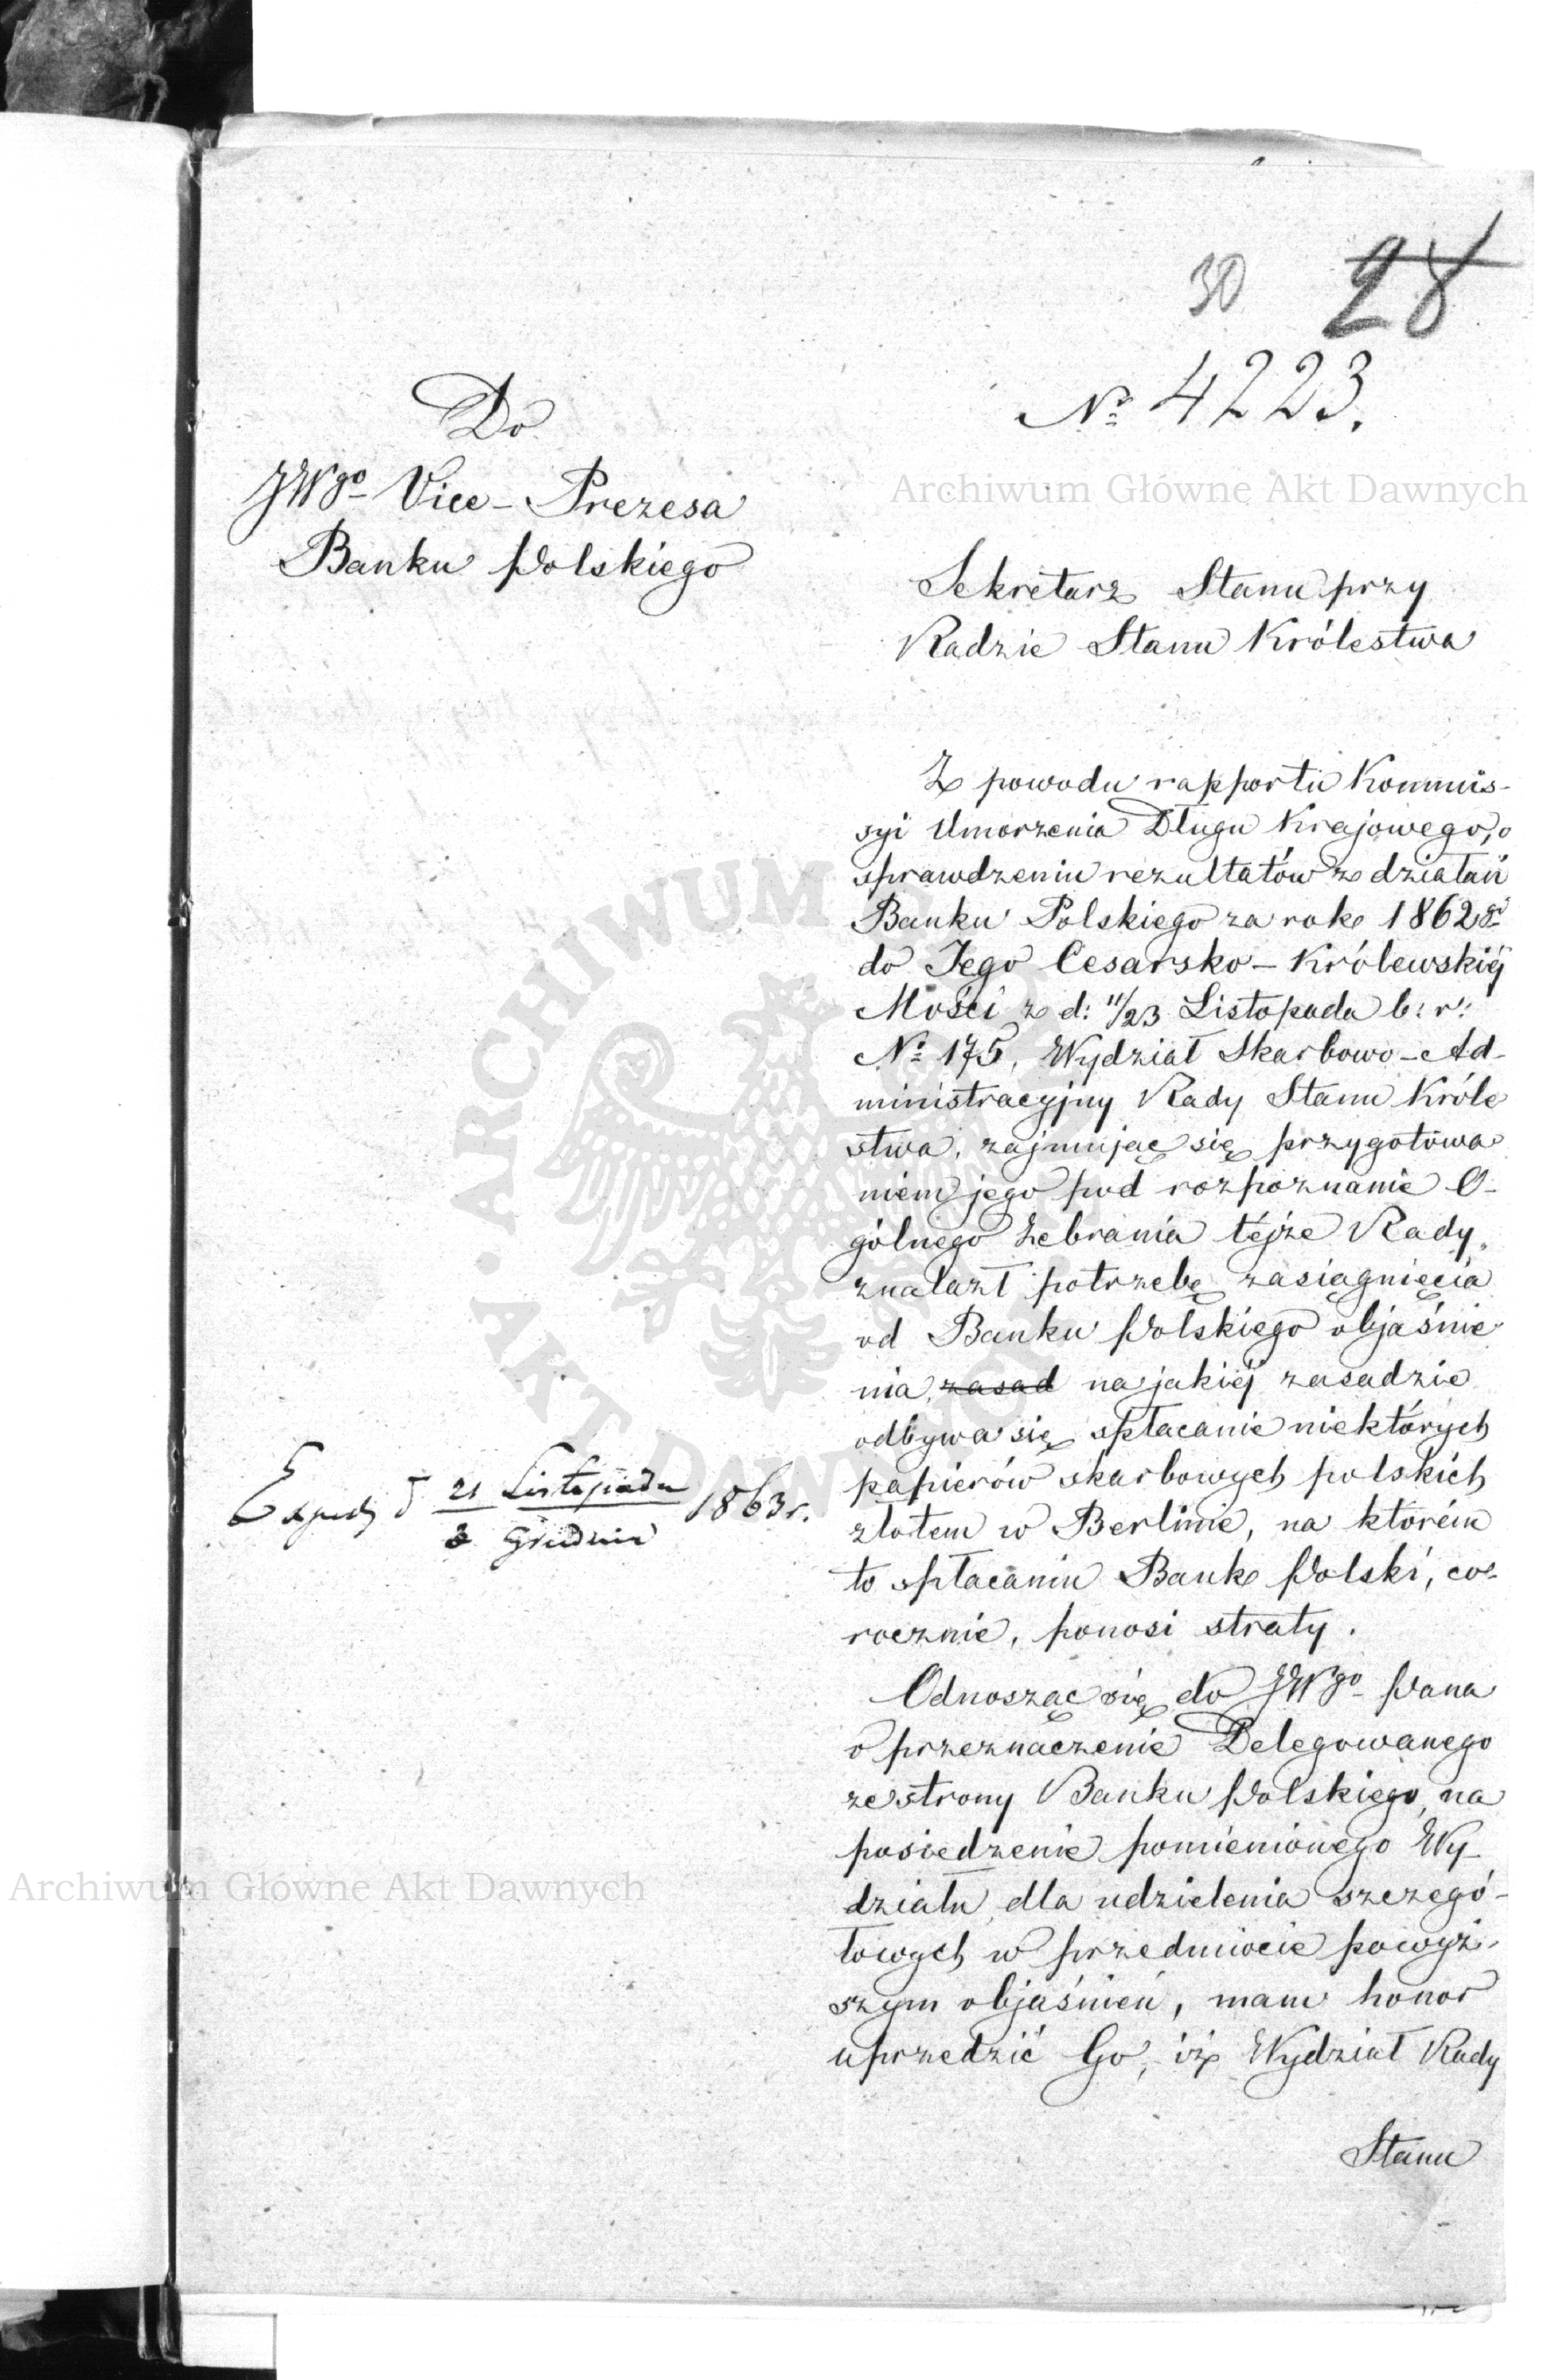 30 28
Nr 4223.
Do
JWgo Vice-Prezesa
Banku Polskiego
Archiwum Główne Akt Dawnych
Sekretarz Stanu przy
Radzie Stanu Królestwa
Z powodu rapportu Kommis-
syi Umorzenia Długu Krajowego, o
sprawdzeniu rezultatów z działań
Banku Polskiego za rok 1862gi
do Jego Cesarsko-Królewskiéj
Mości z d: 11/23 Listopada b: r:
No 175, Wydział Skarbowo-Ad-
ministracyjny Rady Stanu Króle
stwa, zajmując się przygotowa
niem jego pod rozpoznanie O-
gólnego Zebrania téjże Rady,
znalazł potrzebę zasiągnięcia
od Banku Polskiego objaśnie
nia, zasad na jakiéj zasadzie
odbywa się spłacanie niektórych
papierów skarbowych polskich
złotem w Berlinie, na którém
to spłacaniu Bank Polski, co-
rocznie, ponosi straty.
Exped d 21 Listopada 1863 r.
3 Grudnia
Odnosząc się do JWgo Pana
o przeznaczenie Delegowanego
ze strony Banku Polskiego, na
posiedzenie pomienionego Wy-
działu, dla udzielenia szczegó-
łowych w przedmiocie powyż-
szym objaśnień, mam honor
uprzedzić Go, iż Wydział Rady
Stanu
Archiwum Główne Akt Dawnych
ARCHIWUM
AKT DAWNYCH